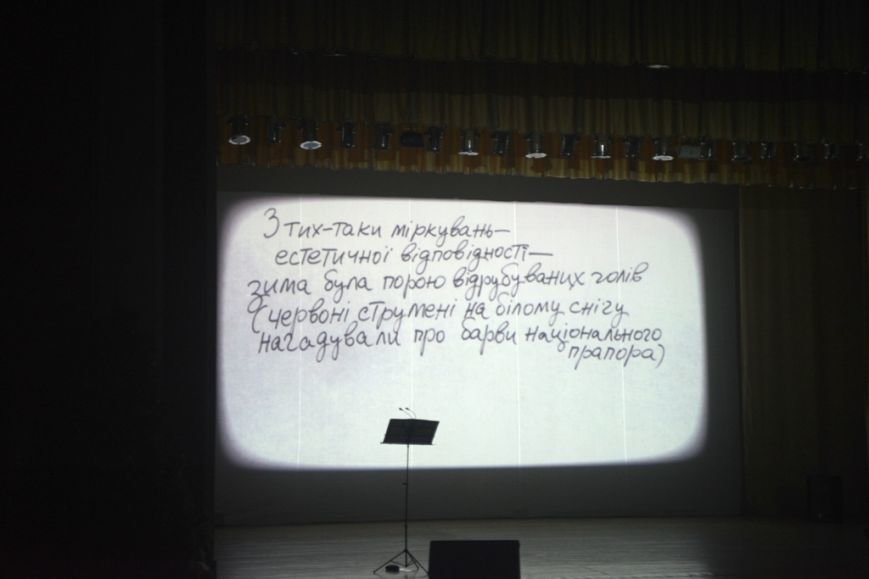 З тих-таки міркувань—
естетичної відповідності—
зима була порою відрубуваних голів
(червоні струмені на білому снігу
нагадували про барви національного
прапора)